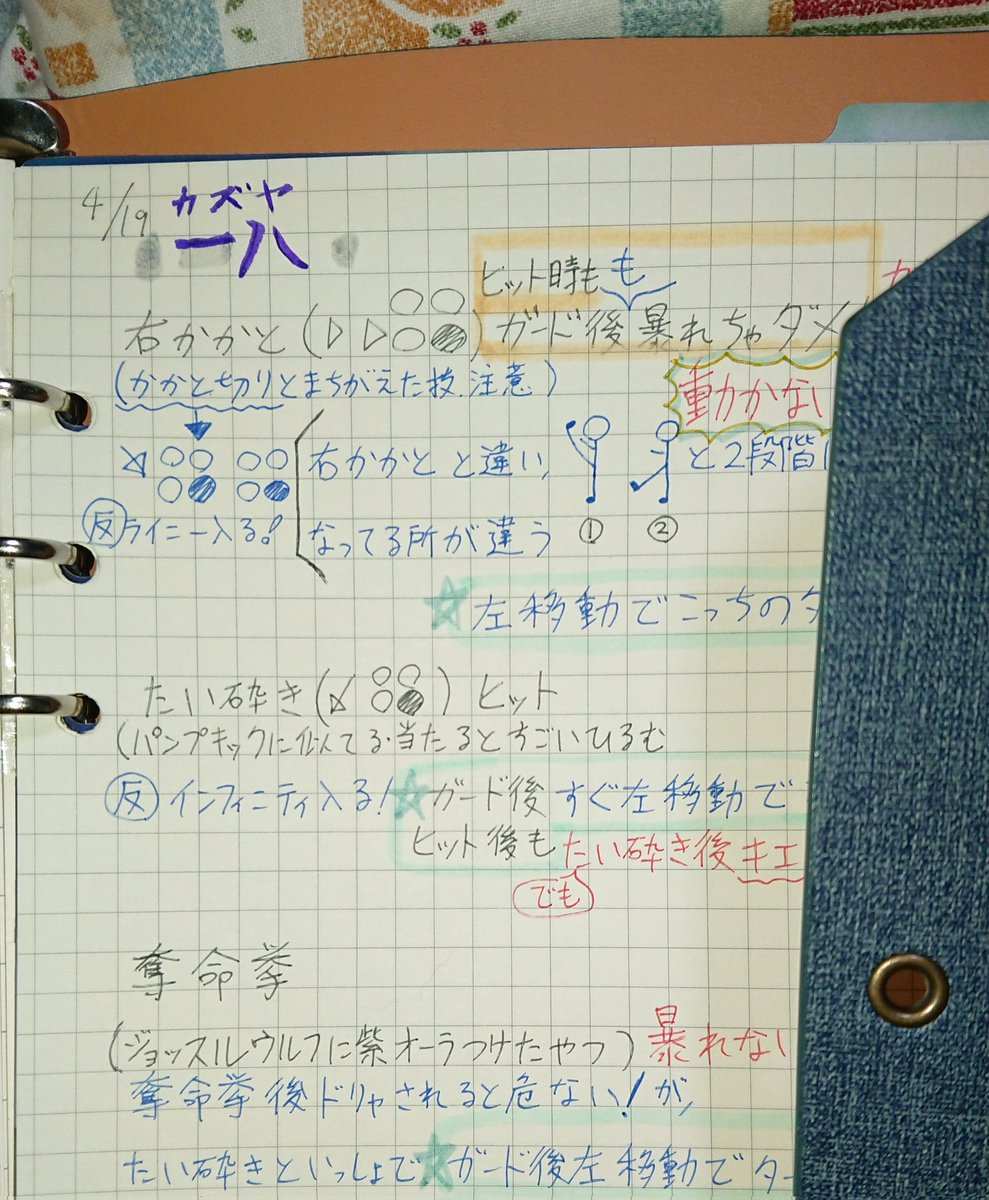 4/19 カズヤ
一八
ヒット時も も
右かかと(▷▷○○○●) ガード後暴れちゃダメ
(かかと切りとまちがえた技.注意)
動かない
右かかとと違い,
①②と2段階
反 ライニー入る!
なってる所が違う
☆左移動でこっちの
たい砕き(○○○●) ヒット
(パンプキックに似てる・当たるとすごいひるむ
反 インフィニティ入る!☆ガード後すぐ左移動で
ヒット後も たい砕き後キエ
でも
奪命拳
(ジョッスルウルフに紫オーラつけたやつ) 暴れない
奪命拳後ドリャされると危ない!が,
たい砕きといっしょで☆ガード後左移動でター